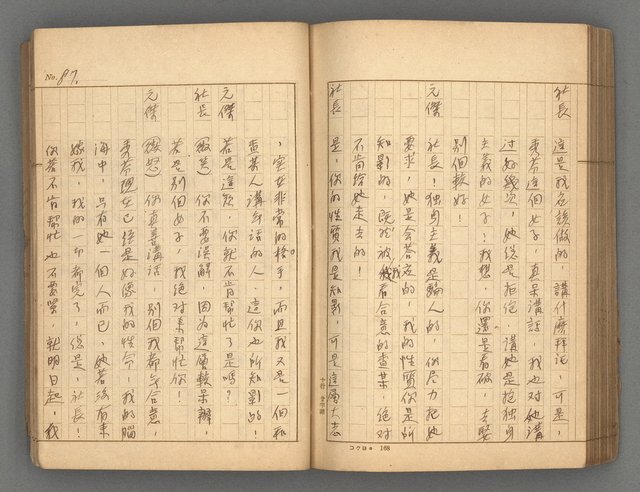 社長 這是我應該做的，講什麼拜託，可是，
素蓉這個女子，真呆講話，我也對她講
過好幾次，她總是拒絕，講她是抱獨身
主義的女子！我想，你還是看破，去娶
別個較好！
元傑 社長！獨身主義是騙人的，你尽力把她
要求，她是會答应的，我的性質你是所
知影的，既然被我看合意的查某，絕对
不肯給她走去的！
社長 是，你的性質我是知影，可是這層大志
コクヨ 168
No. 87.
，実在非常的棘手，而且我又是一個和
查某人講無話的人，這你也所知影的！
元傑 若是這款，你就不肯幫忙了是嗎？
社長 (微笑) 你不要誤解，因为這層較呆辦，
若是別個女子，我絕对來幫忙你！
元傑 (激怒) 你真善講話，別個我都無合意，
素蓉現在已經是好像我的性命，我的腦
海中，只有她一個人而已，她若沒有來
嫁我，我的一切都完了，總是，社長！
你若不肯幫忙也不要緊，就明日起，我